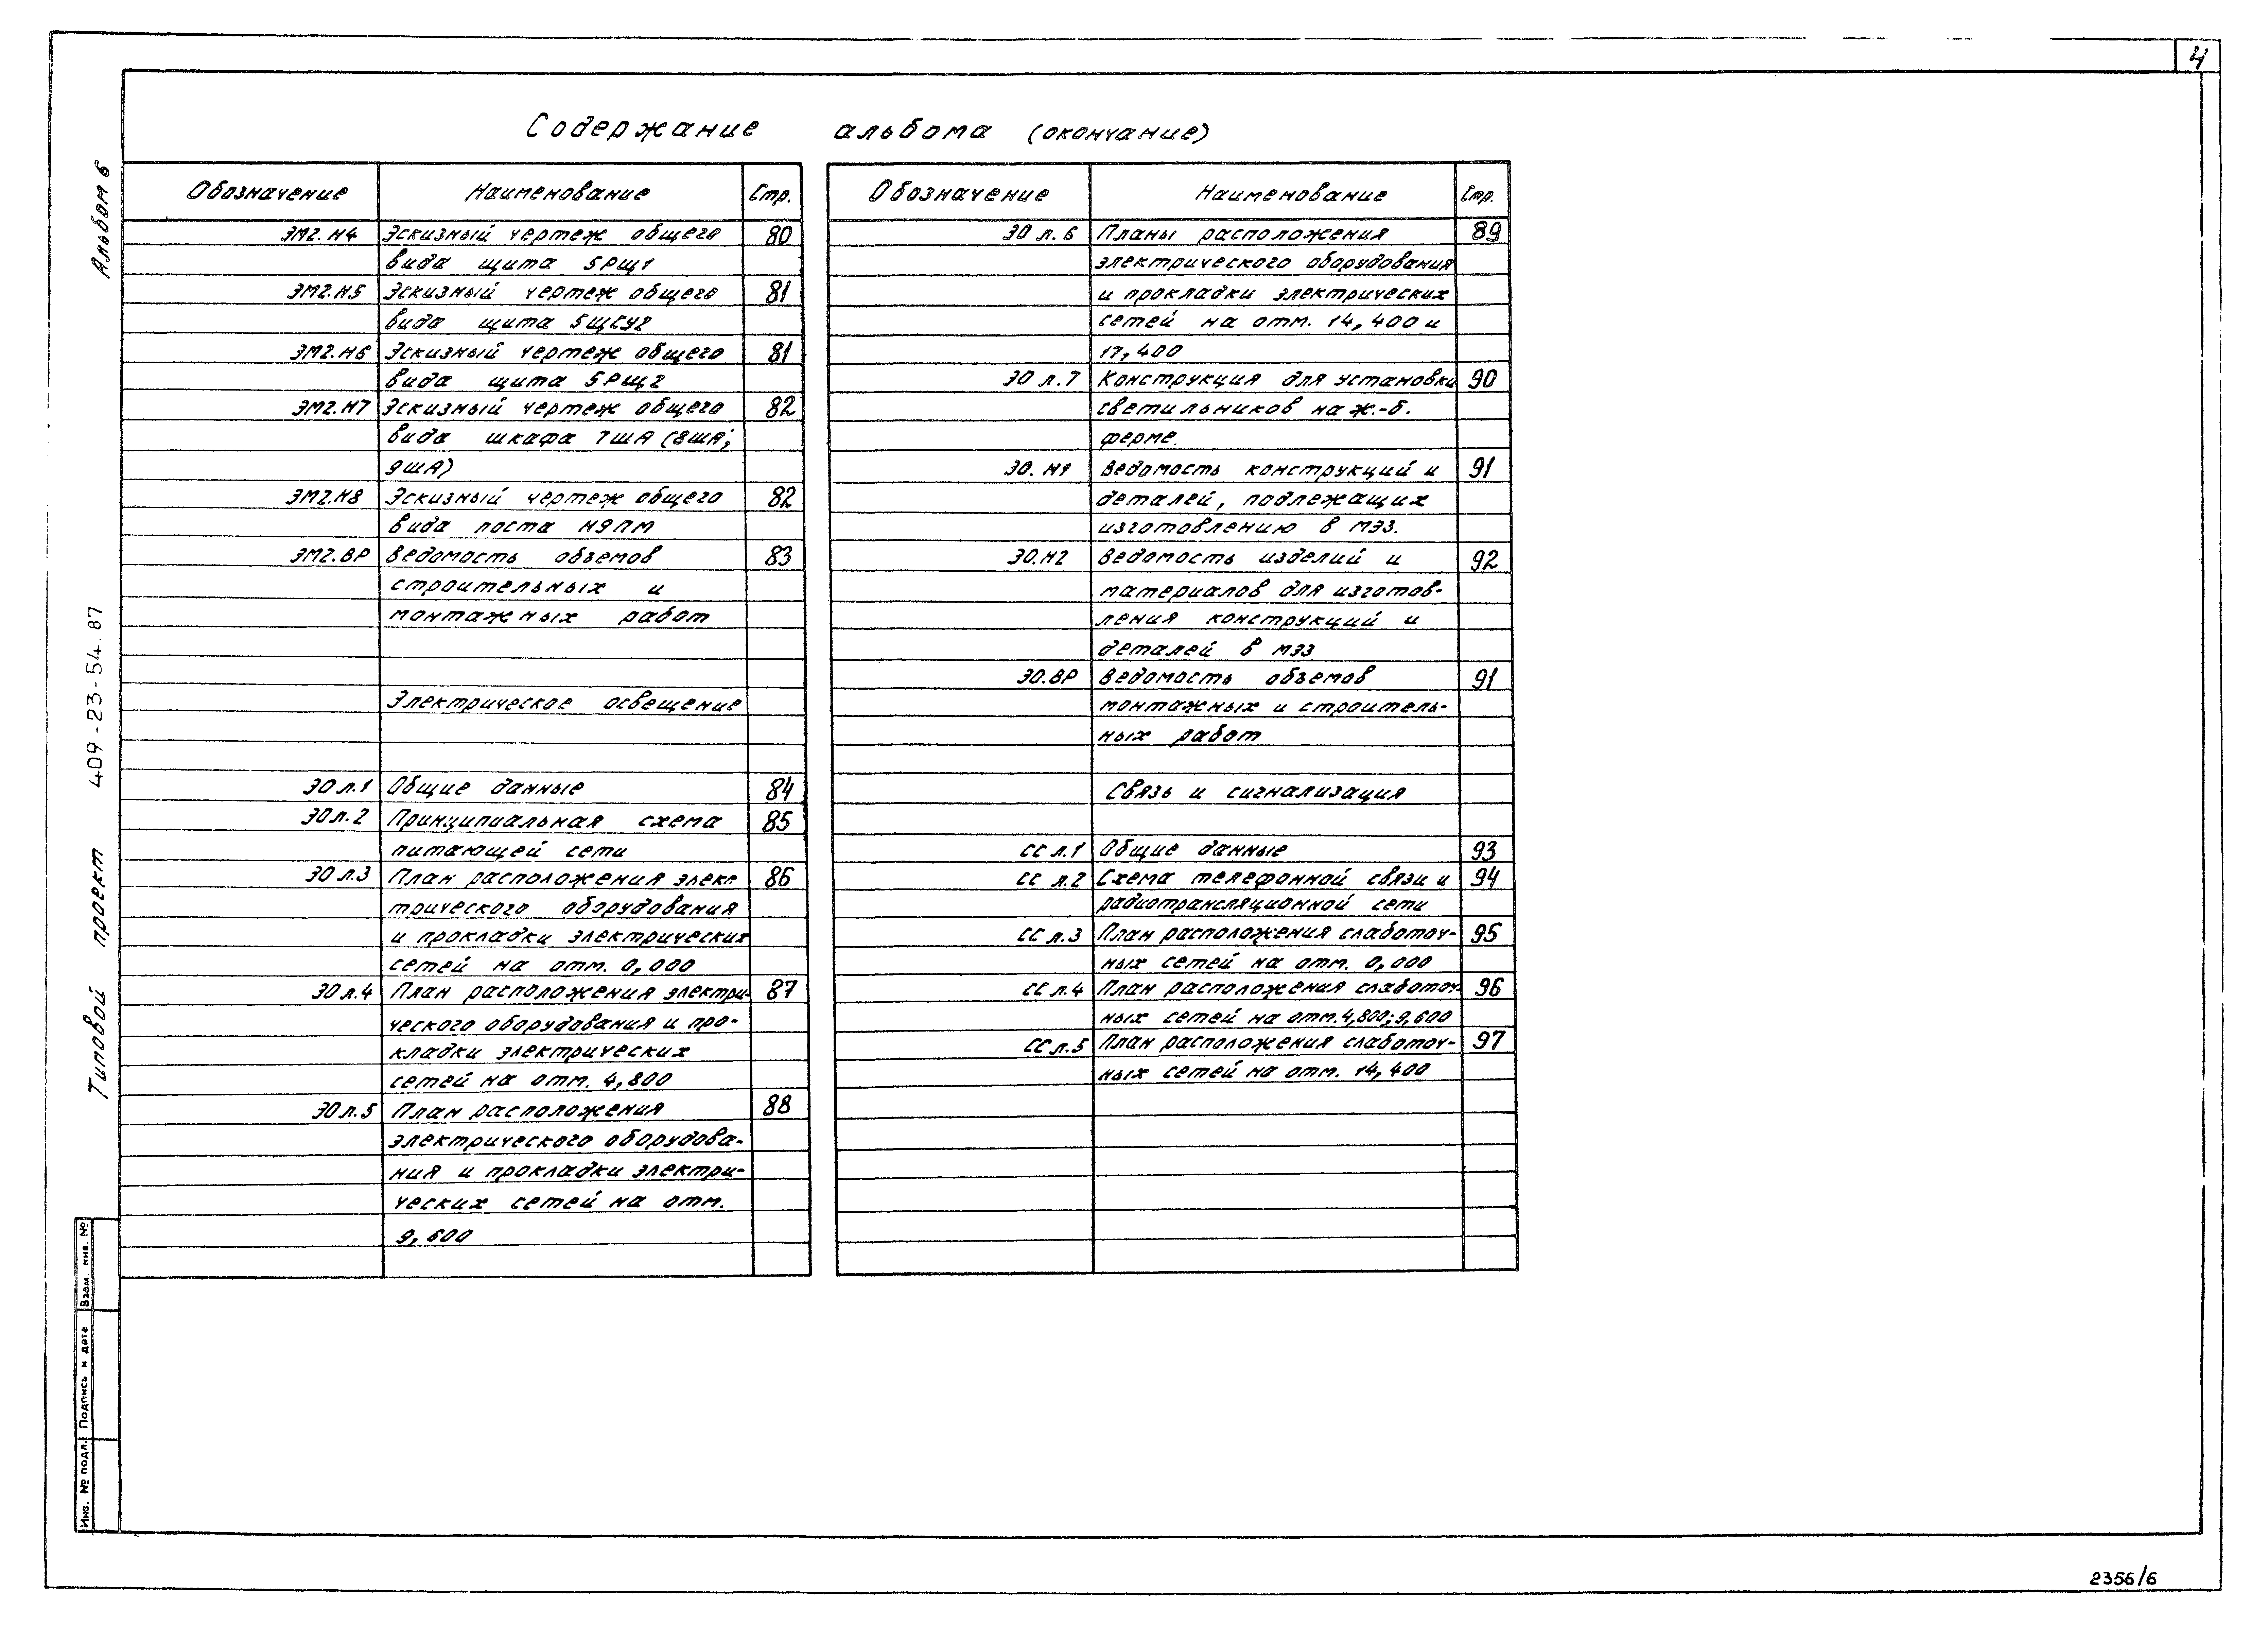 4
Содержание альбома (окончание)
Обозначение Наименование Стр.
ЭМ2.Н4 Эскизный чертеж общего 80
вида щита 5РЩ1
ЭМ2.Н5 Эскизный чертеж общего 81
вида щита 5ЩСУ2
ЭМ2.Н6 Эскизный чертеж общего 81
вида щита 5РЩ2
ЭМ2.Н7 Эскизный чертеж общего 82
вида шкафа 7ША (8ША;
9ША)
ЭМ2.Н8 Эскизный чертеж общего 82
вида поста Н9ПМ
ЭМ2.ВР Ведомость объемов 83
строительных и
монтажных работ
Электрическое освещение
ЭО л.1 Общие данные 84
ЭО л.2 Принципиальная схема 85
питающей сети
ЭО л.3 План расположения элект 86
трического оборудования
и прокладки электрических
сетей на отм. 0,000
ЭО л.4 План расположения электри- 87
ческого оборудования и про-
кладки электрических
сетей на отм. 4,800
ЭО л.5 План расположения 88
электрического оборудова-
ния и прокладки электри-
ческих сетей на отм.
9,600
Обозначение Наименование Стр.
ЭО л.6 Планы расположения 89
электрического оборудования
и прокладки электрических
сетей на отм. 14,400 и
17,400
ЭО л.7 Конструкция для установки 90
светильников на ж.-б.
ферме.
ЭО. Н1 Ведомость конструкций и 91
деталей, подлежащих
изготовлению в МЭЗ.
ЭО.Н2 Ведомость изделий и 92
материалов для изготов-
ления конструкций и
деталей в МЭЗ
ЭО.ВР Ведомость объемов 91
монтажных и строитель-
ных работ
Связь и сигнализация
СС л.1 Общие данные 93
СС л.2 Схема телефонной связи и 94
радиотрансляционной сети
СС л.3 План расположения слаботоч- 95
ных сетей на отм. 0,000
СС л.4 План расположения слаботоч- 96
ных сетей на отм. 4,800; 9,600
СС л.5 План расположения слаботоч- 97
ных сетей на отм. 14,400
Альбом 6
Типовой проект 409-23-54.87
Инв. № подл. Подпись и дата Взам. инв. №
2356/6